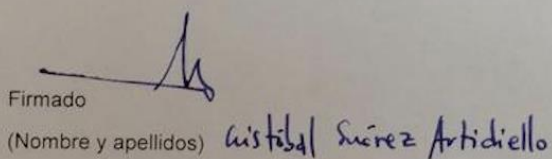 Firmado
(Nombre y apellidos) Cristóbal Suárez Artidiello